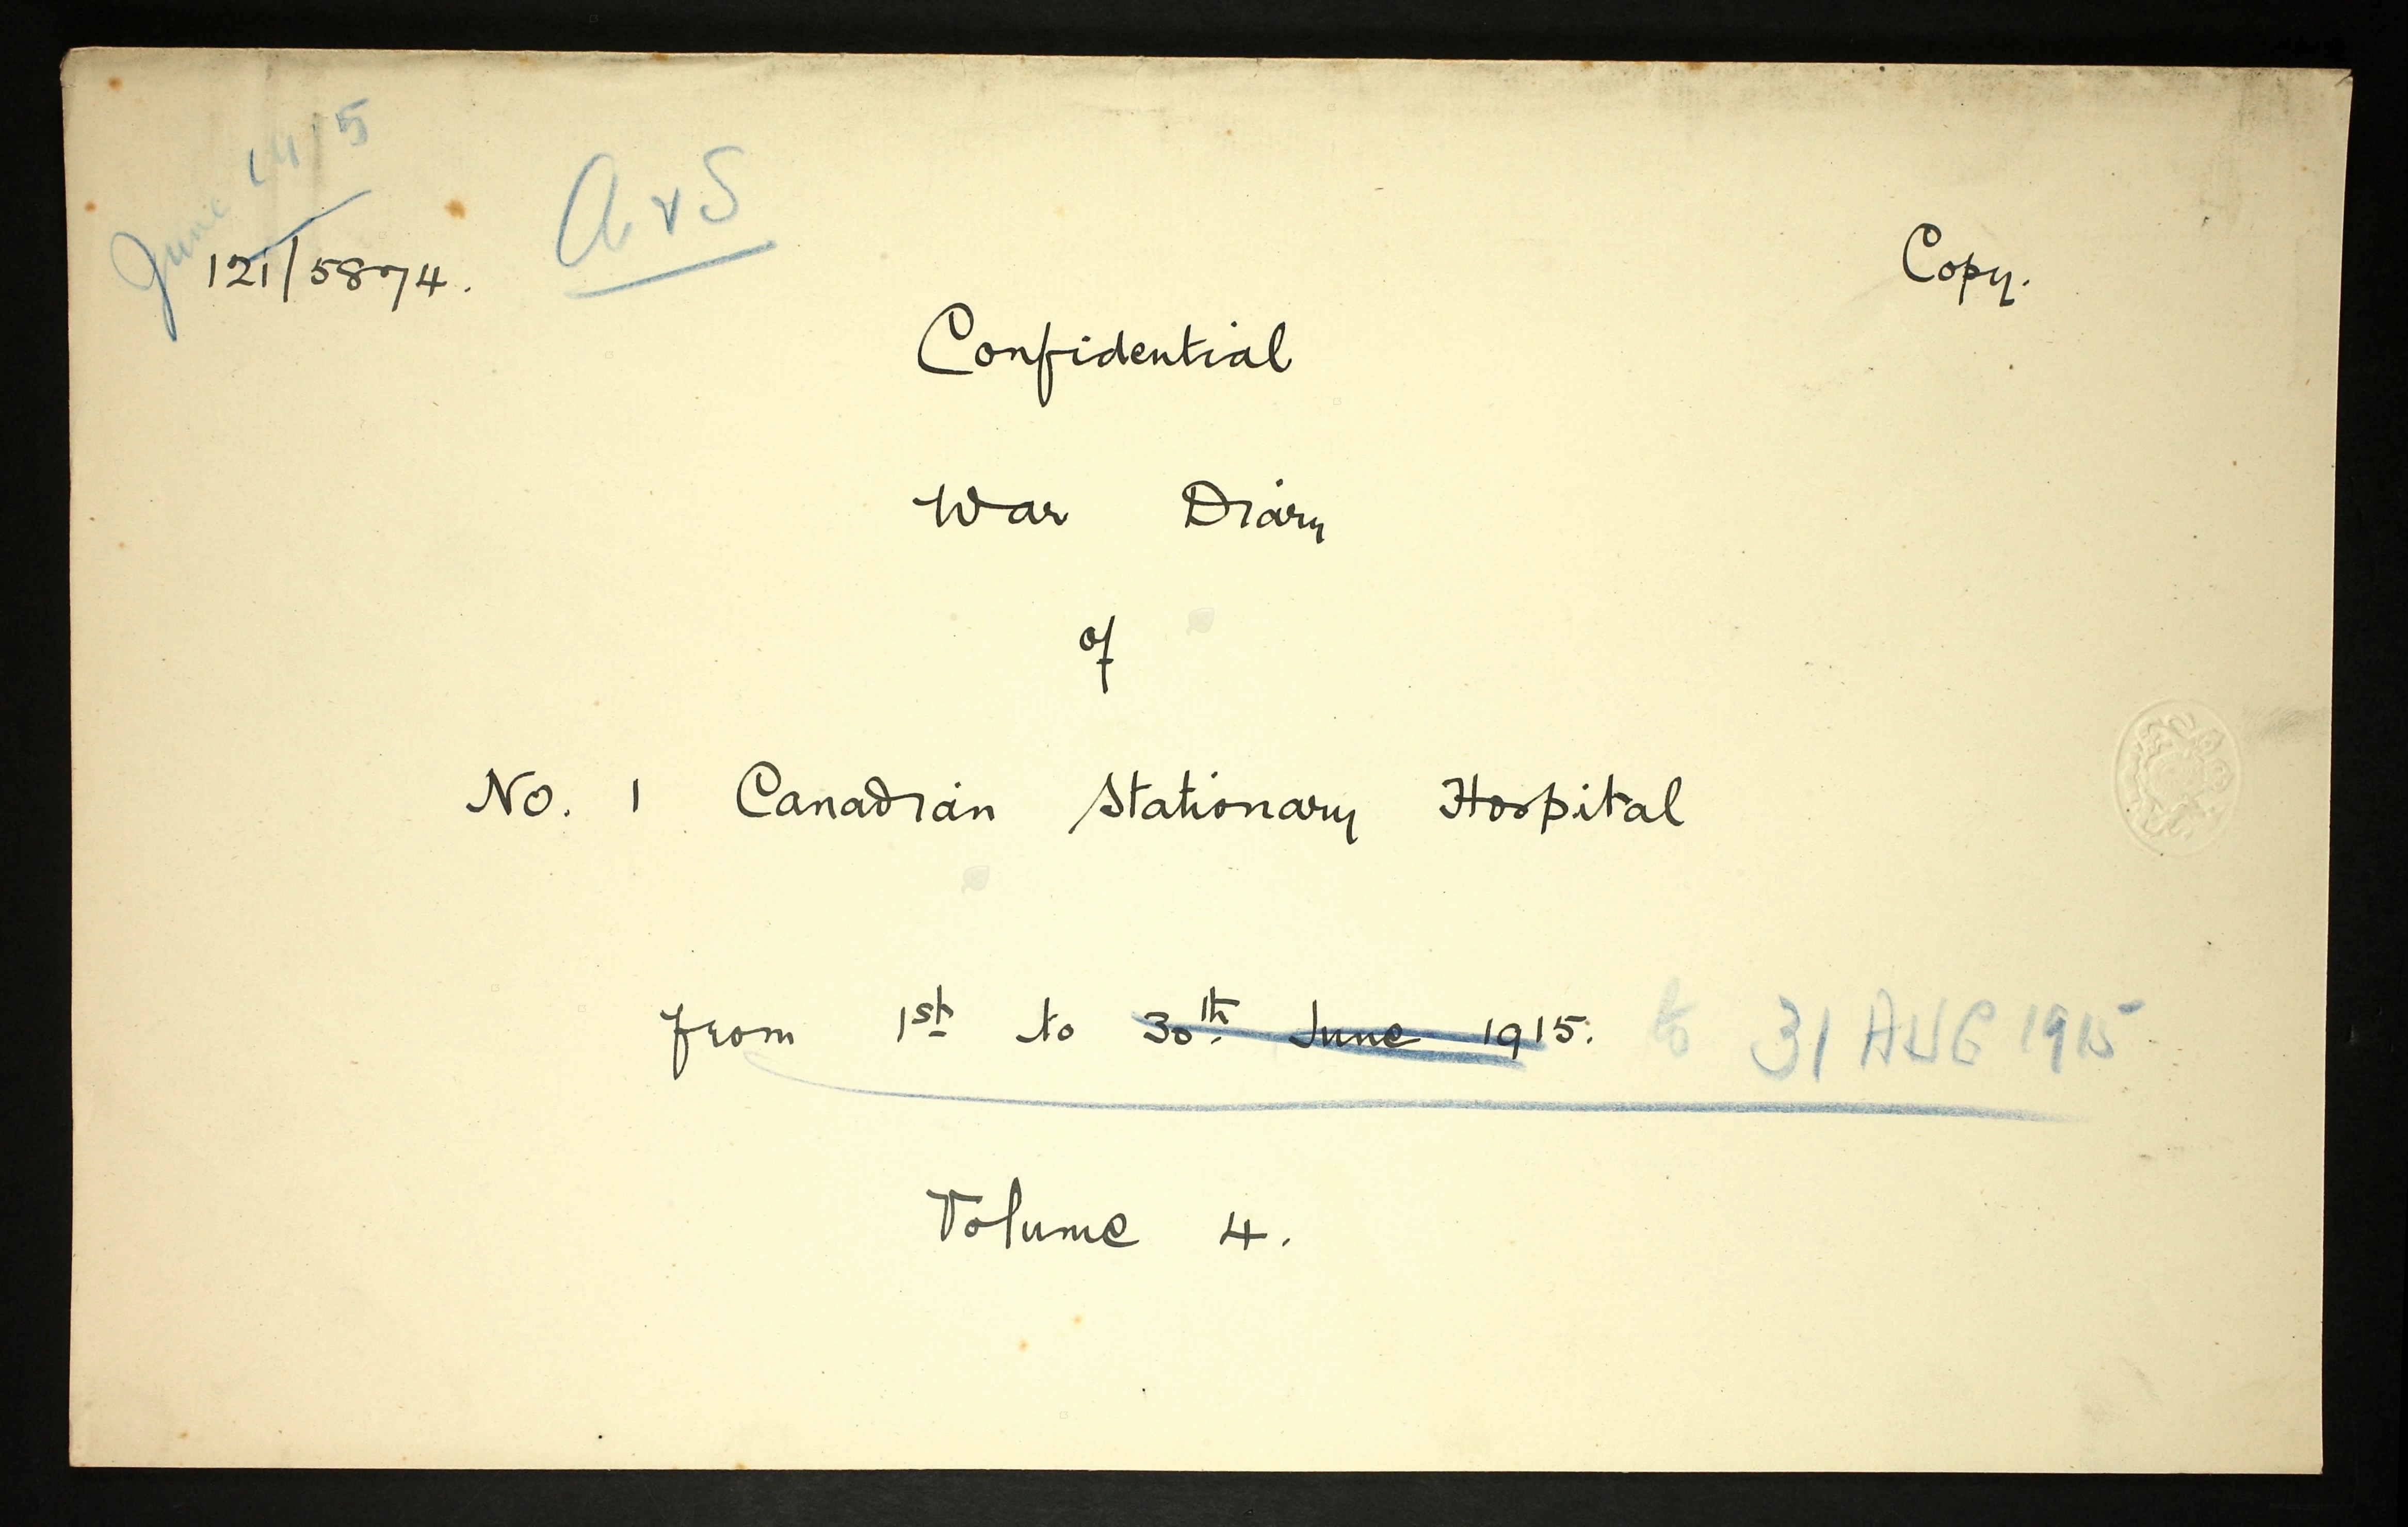 June 1915
121/5874.
a & S
Copy.
Confidential
War Diary
of
No. 1 Canadian Stationary Hospital
from 1st to 30th June 1915. to 31 AUG 1915
Volume 4.